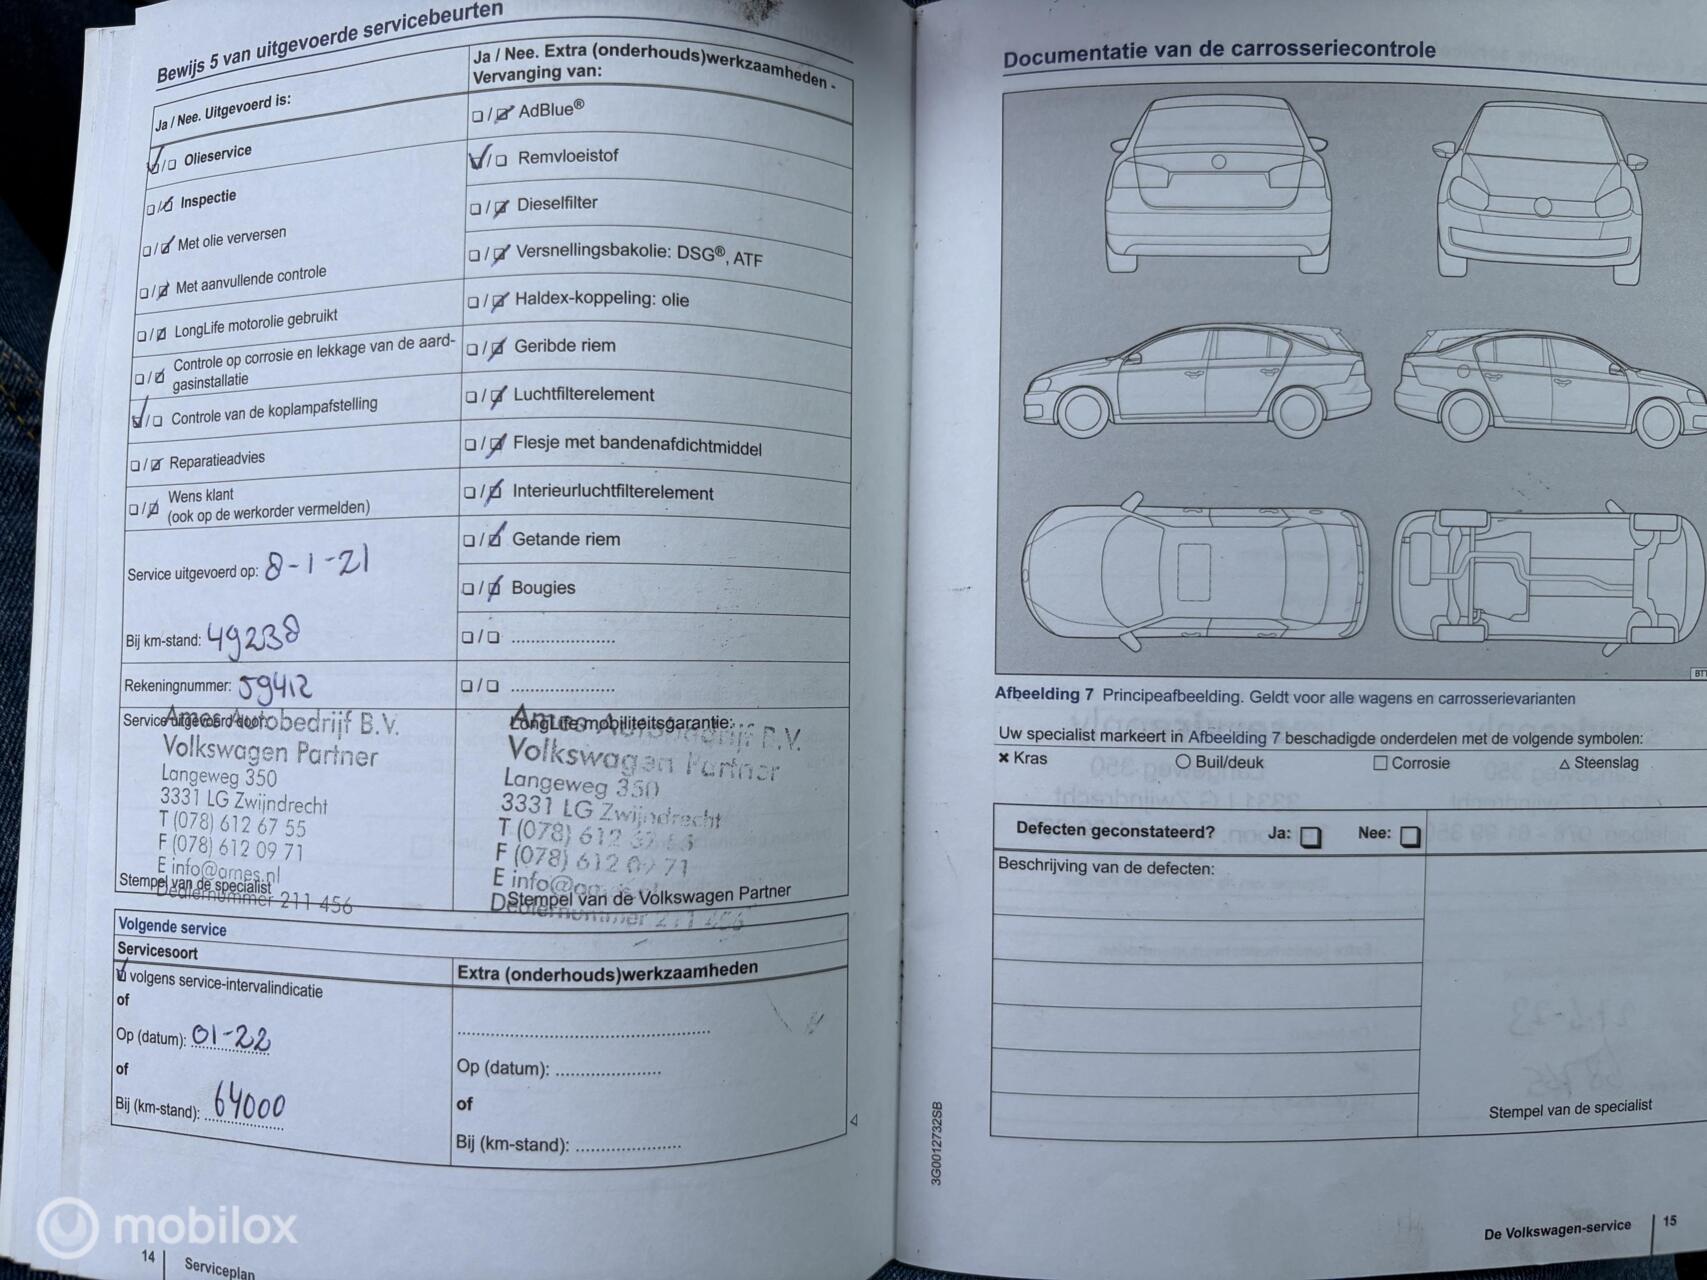 Bewijs 5 van uitgevoerde servicebeurten
Ja / Nee. Uitgevoerd is:
Olieservice
Inspectie
Met olie verversen
Met aanvullende controle
LongLife motorolie gebruikt
Controle op corrosie en lekkage van de aard-
gasinstallatie
Controle van de koplampafstelling
Reparatieadvies
Wens klant
(ook op de werkorder vermelden)
Service uitgevoerd op: 8-1-21
Bij km-stand: 49238
Rekeningnummer: 59412
Service uitgevoerd door:
Ames Autobedrijf B.V.
Volkswagen Partner
Langeweg 350
3331 LG Zwijndrecht
T (078) 612 67 55
F (078) 612 09 71
E info@ames.nl
Stempel van de specialist
Dealernummer 211 456
Ja / Nee. Extra (onderhouds)werkzaamheden -
Vervanging van:
AdBlue®
Remvloeistof
Dieselfilter
Versnellingsbakolie: DSG®, ATF
Haldex-koppeling: olie
Geribde riem
Luchtfilterelement
Flesje met bandenafdichtmiddel
Interieurluchtfilterelement
Getande riem
Bougies
LongLife mobiliteitsgarantie:
Ames Autobedrijf B.V.
Volkswagen Partner
Langeweg 350
3331 LG Zwijndrecht
T (078) 612 67 55
F (078) 612 09 71
E info@ames.nl
Stempel van de Volkswagen Partner
Dealernummer 211 456
Volgende service
Servicesoort
volgens service-intervalindicatie
of
Op (datum): 01-22
of
Bij (km-stand): 64000
Extra (onderhouds)werkzaamheden
Op (datum):
of
Bij (km-stand):
14 | Serviceplan
mobilox
Documentatie van de carrosseriecontrole
BTT
Afbeelding 7 Principeafbeelding. Geldt voor alle wagens en carrosserievarianten
Uw specialist markeert in Afbeelding 7 beschadigde onderdelen met de volgende symbolen:
Kras Buil/deuk Corrosie Steenslag
Defecten geconstateerd? Ja: Nee:
Beschrijving van de defecten:
Stempel van de specialist
3G0012732SB
De Volkswagen-service | 15